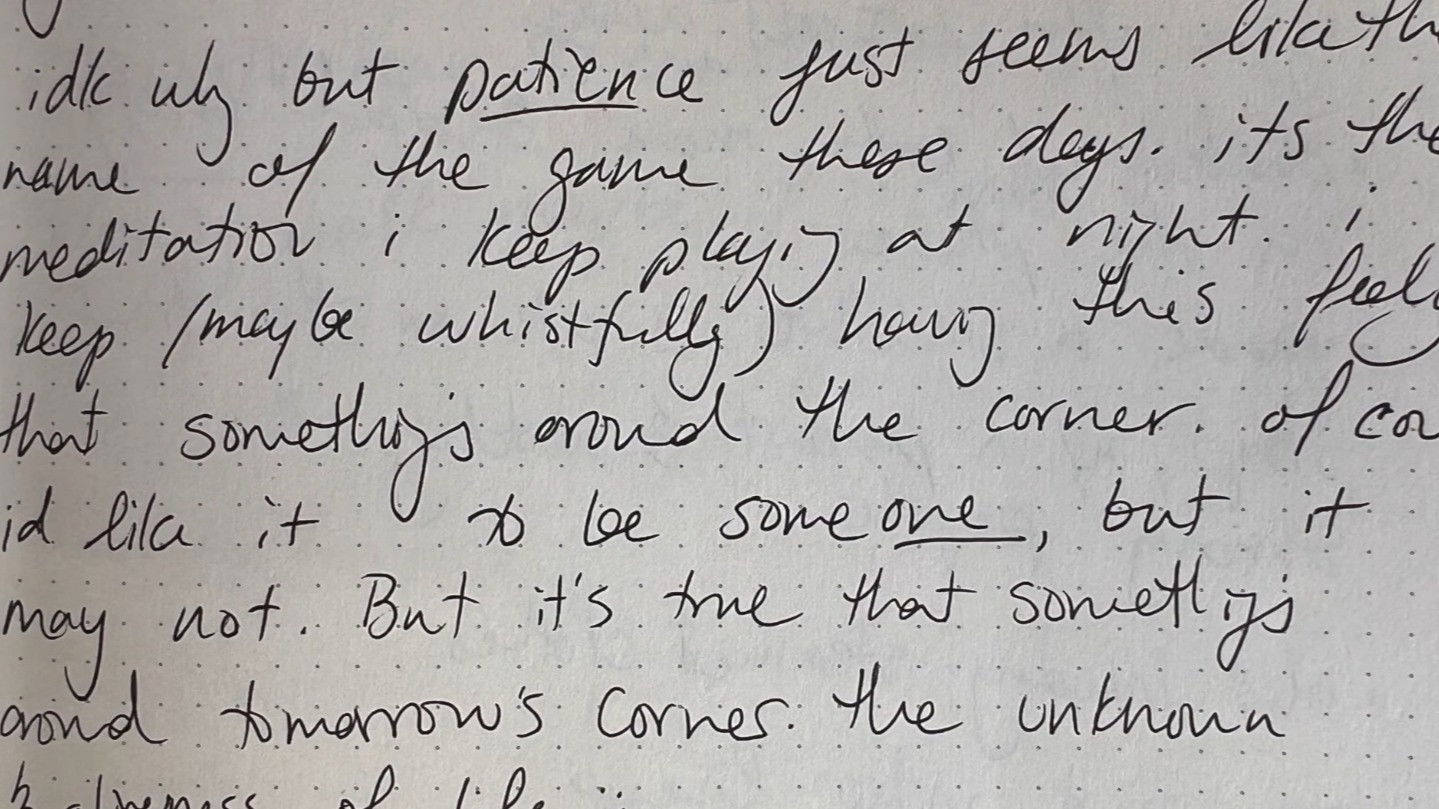 idk why but patience just seems like th
name of the game these days. its the
meditation i keep playing at night. i
keep (maybe whistfully) having this feelg
that something's around the corner. of cou
id like it to be someone, but it
may not. But it's true that something's
around tomorrow's corner. the unknown
of life